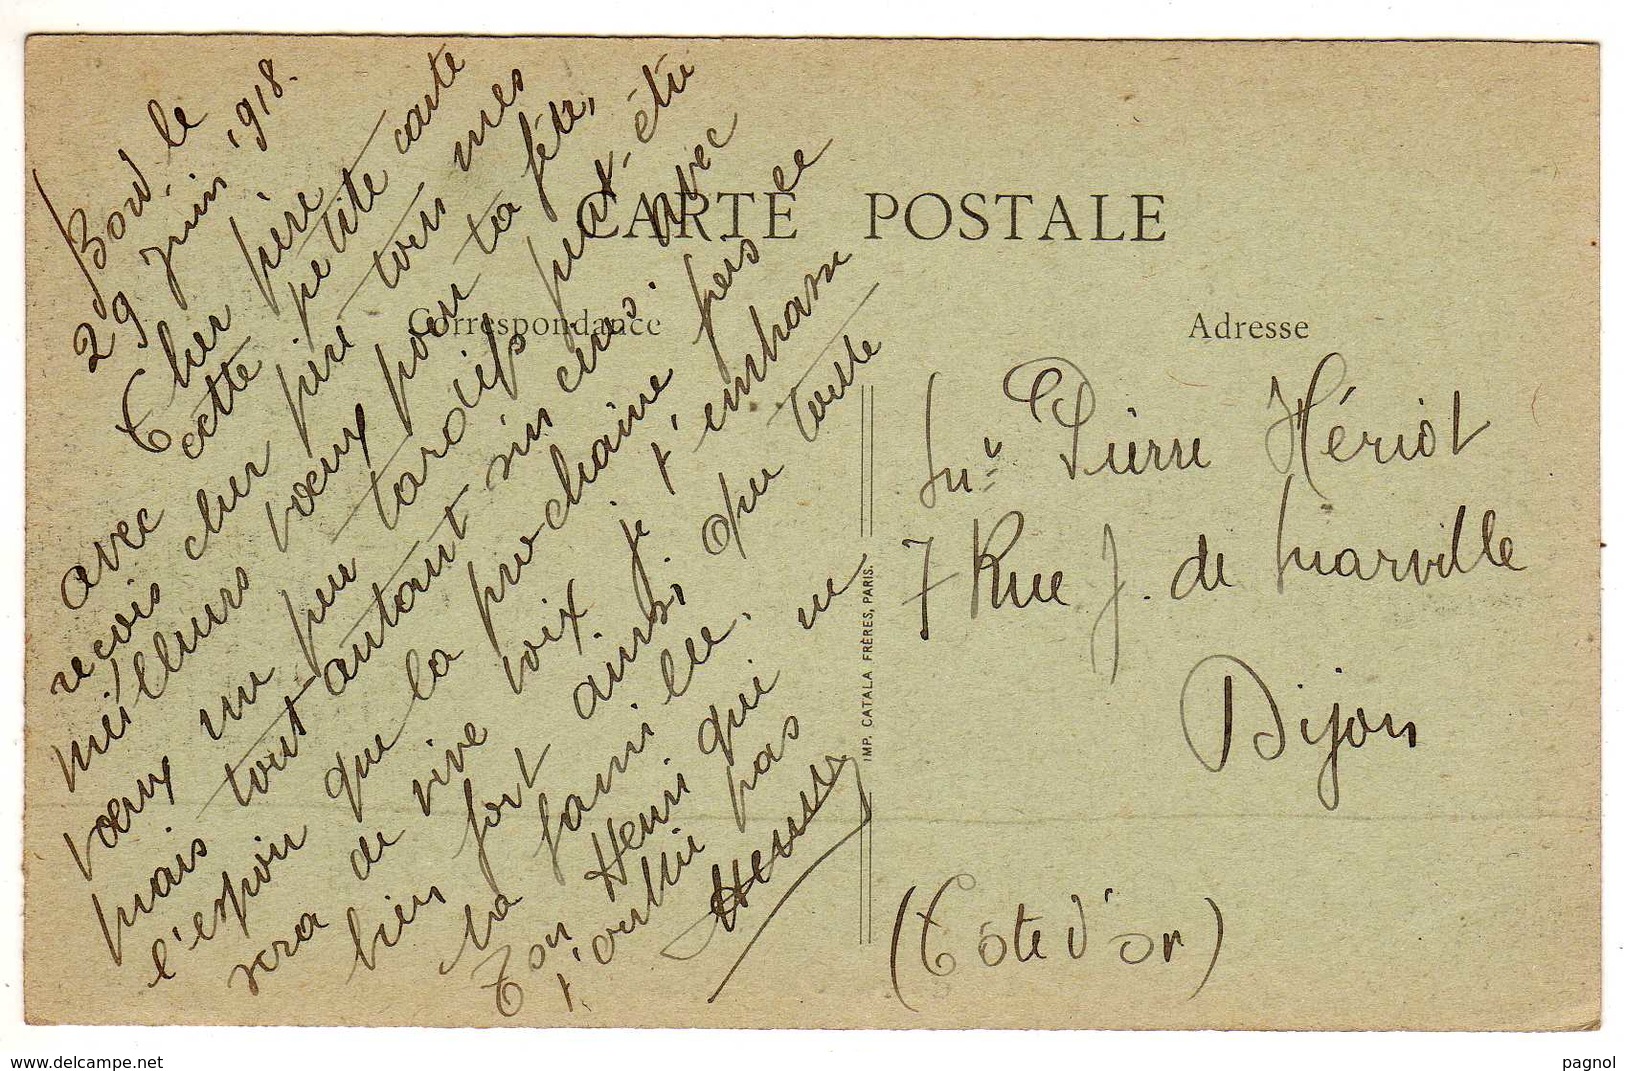 CARTE POSTALE
Correspondance
Adresse
Bord. le
29 juin 1918.
Cher père
Cette petite carte
avec
reçois cher père tous mes
meilleurs vœux pour ta fête,
vœux un peu tardifs peut-être
mais tout autant sincères. avec
l'espoir que la prochaine fois ce
sera de vive voix. je t'embrasse
bien fort ainsi que toute
la famille.
Ton Henri qui ne
t'oublie pas
Henri
Mr Pierre Hériot
7 Rue J. de Marville
Dijon
(Côte d'Or)
IMP. CATALA FRÈRES, PARIS.
www.delcampe.net
pagnol